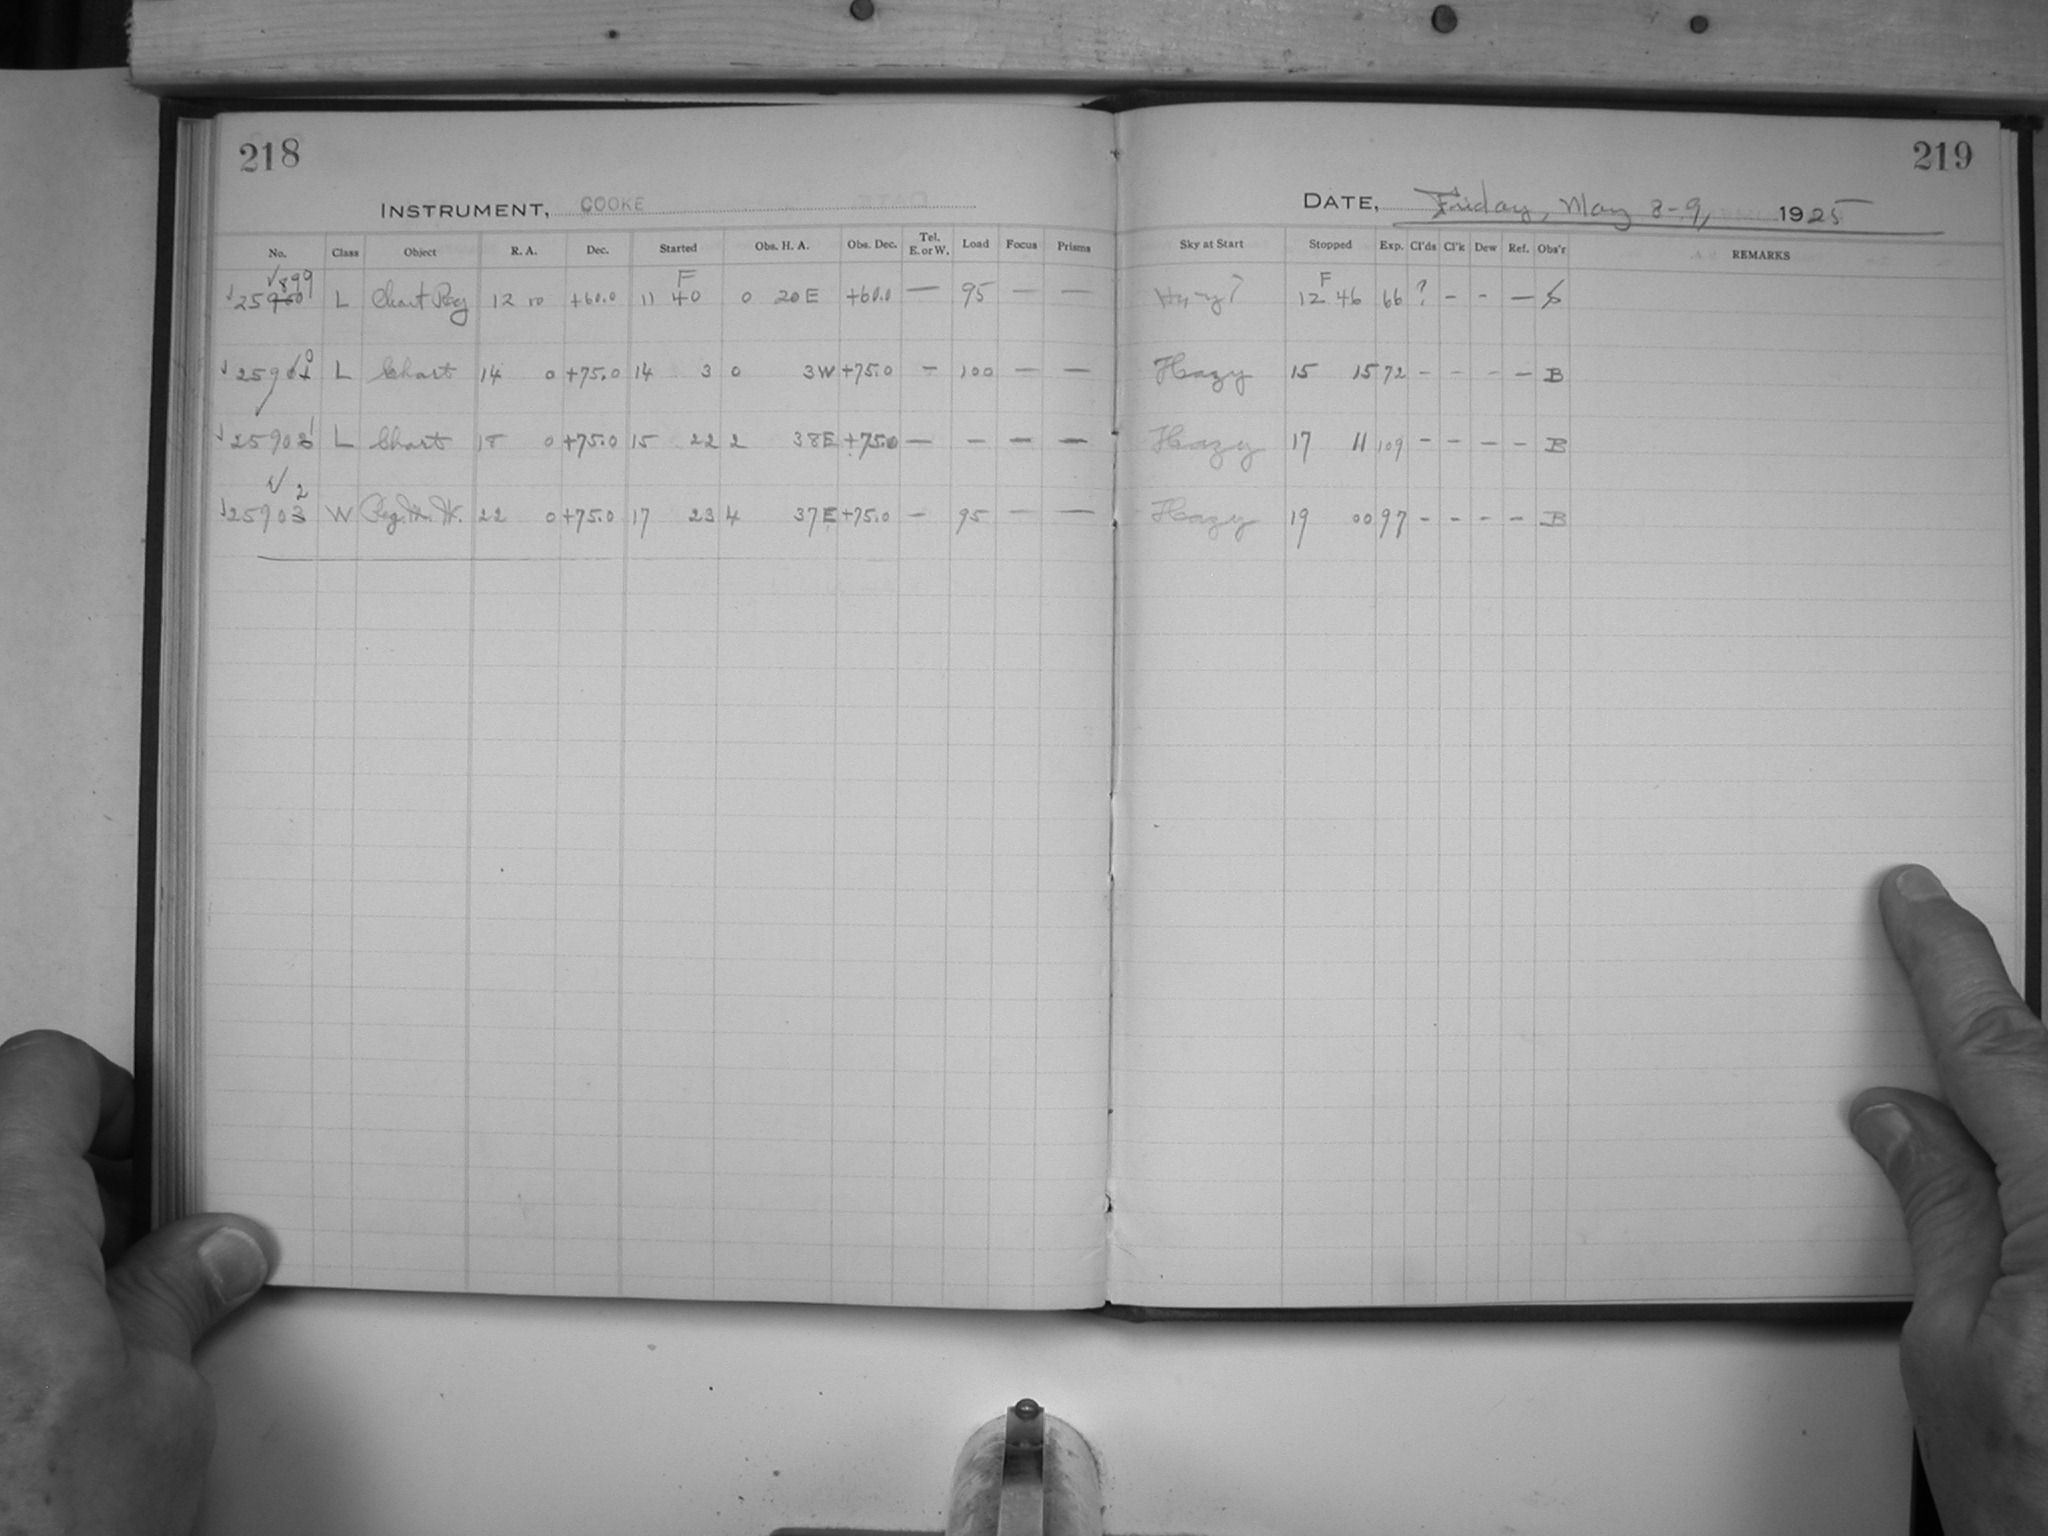 218
INSTRUMENT, COOKE
No. Class Object R. A. Dec. Started Obs. H. A. Obs. Dec. Tel. E. or W. Load Focus Prisms
√899 F
√25900 L Chart Reg 12 10 +60.0 11 40 0 20 E +60.0 — 95 — —
√25901 0 L Chart 14 0 +75.0 14 3 0 3 W +75.0 — 100 — —
√25902 1 L Chart 18 0 +75.0 15 22 2 38 E +75.0 — — — —
√ 2
√25903 W Reg. 22 0 +75.0 17 23 4 37 E +75.0 — 95 — —
219
DATE, Friday, May 8-9, 1925
Sky at Start Stopped Exp. Cl'ds Cl'k Dew Ref. Obs'r REMARKS
F
Hazy? 12 46 66 ? — — —
Hazy 15 15 72 — — — — B
Hazy 17 11 109 — — — — B
Hazy 19 00 97 — — — — B